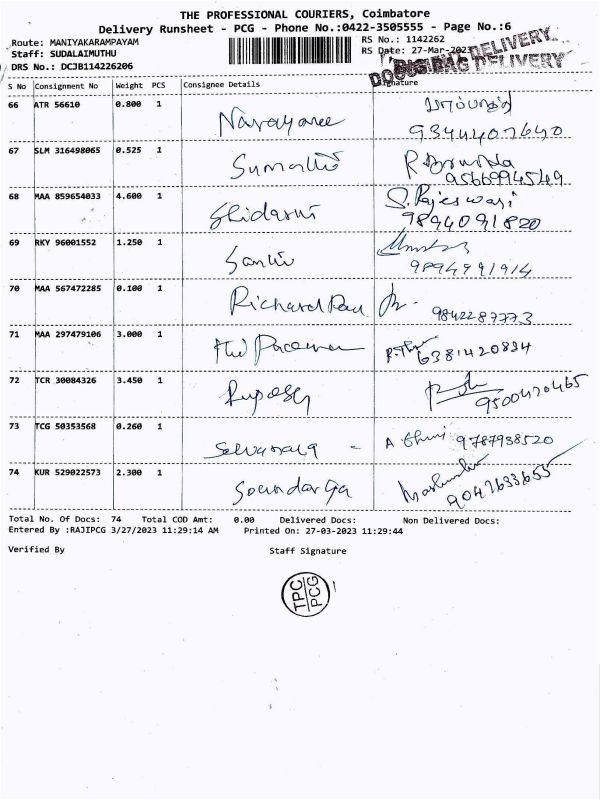 THE PROFESSIONAL COURIERS, Coimbatore
Delivery Runsheet - PCG - Phone No.:0422-3505555 - Page No.:6
Route: MANIYAKARAMPAYAM
RS No.: 1142262
Staff: SUDALAIMUTHU
RS Date: 27-Mar-2023
DRS No.: DCJB114226206
DELIVERY
DELIVERY
S No Consignment No Weight PCS Consignee Details Signature
66 ATR 56610 0.800 1
Narayanee
9344407640
67 SLM 316498065 0.525 1
Sumathi
9566994549
68 MAA 859654033 4.600 1
S. Rajeswari
9894091820
69 RKY 96001552 1.250 1
9894991914
70 MAA 567472285 0.100 1
Richard Paul
9842287773
71 MAA 297479106 3.000 1
6381420834
72 TCR 30084326 3.450 1
9500470465
73 TCG 50353568 0.260 1
Selvaraag - 9787938520
74 KUR 529022573 2.300 1
Soundarya
9047633655
Total No. Of Docs: 74 Total COD Amt: 0.00 Delivered Docs: Non Delivered Docs:
Entered By :RAJIPCG 3/27/2023 11:29:14 AM Printed On: 27-03-2023 11:29:44
Verified By Staff Signature
TPC
PCG